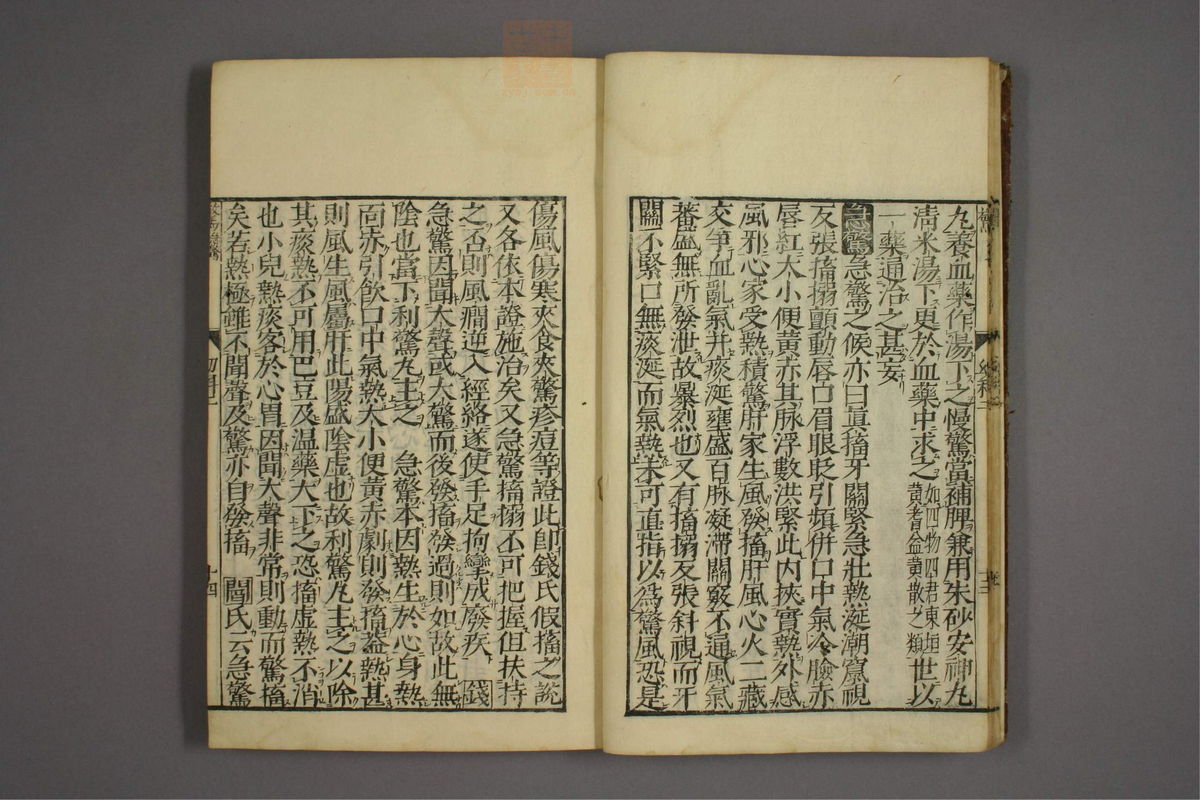 丸養血藥作湯下之慢驚當補脾兼用朱砂安神丸
淸米湯下更於血藥中求之如四物四君東垣黃耆益黃散之類世以
一藥通治之甚妄
急驚急驚之候亦曰眞搐牙關緊急壯熱涎潮竄視
反張搐搦顫動唇口眉眼眨引頻併口中氣冷臉赤
唇紅大小便黃赤其脉浮數洪緊此内挾實熱外感
風邪心家受熱積驚肝家生風發搐肝風心火二藏
交爭血亂氣并痰涎壅盛百脉凝滯關竅不通風氣
蕃盛無所發泄故暴烈也又有搐搦反張斜視而牙
關不緊口無痰涎而氣熱未可直指以爲驚風恐是
傷風傷寒夾食夾驚疹痘等證此卽錢氏假搐之說
又各依本證施治矣又急驚搐搦不可把握但扶持
之否則風癇逆入經絡遂使手足拘攣成廢疾 錢
急驚因聞大聲或大驚而後發搐發過則如故此無
陰也當下利驚丸主之 急驚本因熱生於心身熱
面赤引飲口中氣熱大小便黃赤劇則發搐蓋熱甚
則風生風屬肝此陽盛陰虛也故利驚丸主之以除
其痰熱不可用巴豆及温藥大下之恐搐虛熱不消
也小兒熱痰客於心胃因聞大聲非常則動而驚搐
矣若熱極雖不聞聲及驚亦自發搐 閻氏云急驚
十四